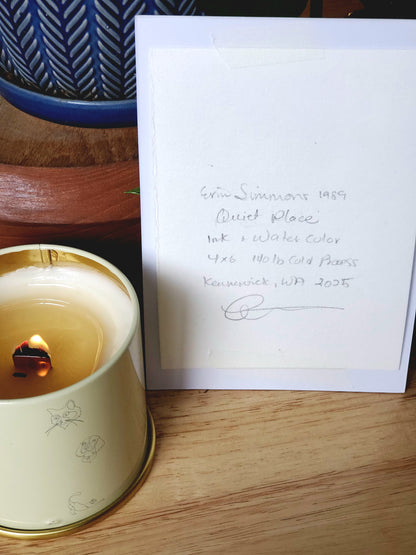 Erin Simmons 1989
Quiet Place
Ink + Water Color
4x6 140 lb Cold Press
Kennewick, WA 2025